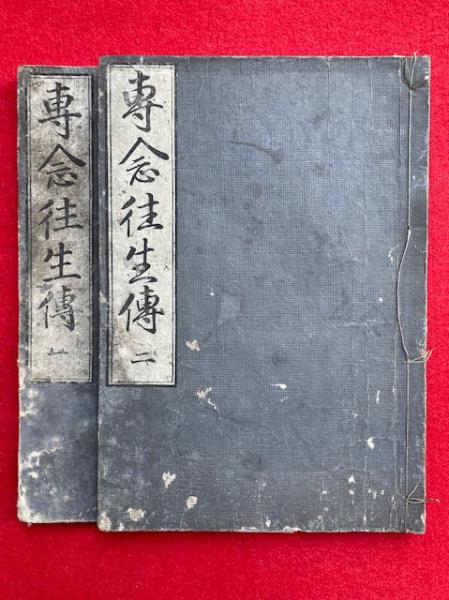 專念往生傳 二
專念往生傳 一